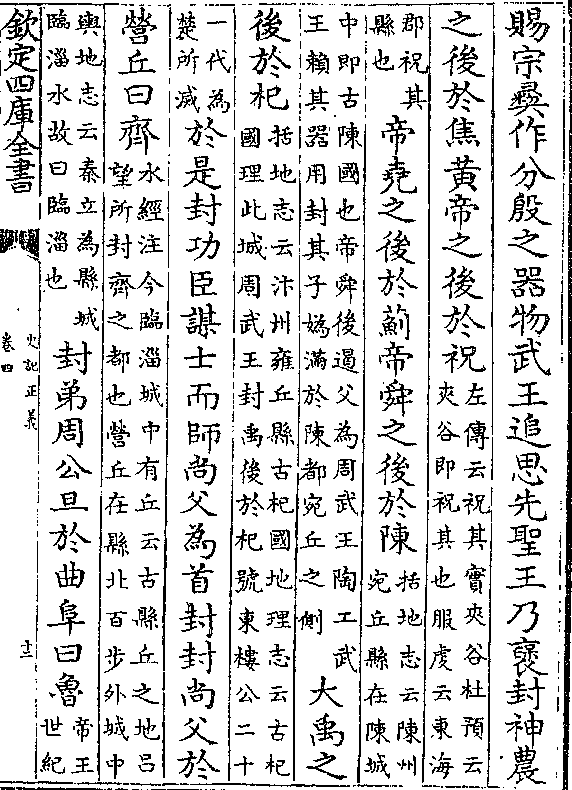 賜宗彝作分殷之器物武王追思先聖王乃襃封神農
之後於焦黃帝之後於祝左傳云祝其實夾谷杜預云
夾谷即祝其也服虔云東海
郡祝其
縣也帝堯之後於薊帝舜之後於陳括地志云陳州
宛丘縣在陳城
中即古陳國也帝舜後遏父為周武王陶工武
王賴其器用封其子媯滿於陳都宛丘之側大禹之
後於杞括地志云汴州雍丘縣古杞國地理志云古杞
國理此城周武王封禹後於杞號東樓公二十
一代為
楚所滅於是封功臣謀士而師尚父為首封封尚父於
營丘曰齊水經注今臨淄城中有丘云古縣丘之地吕
望所封齊之都也營丘在縣北百步外城中
輿地志云秦立為縣城
臨淄水故曰臨淄也封弟周公旦於曲阜曰魯帝王
世紀
欽定四庫全書
史記正義
卷四
十三